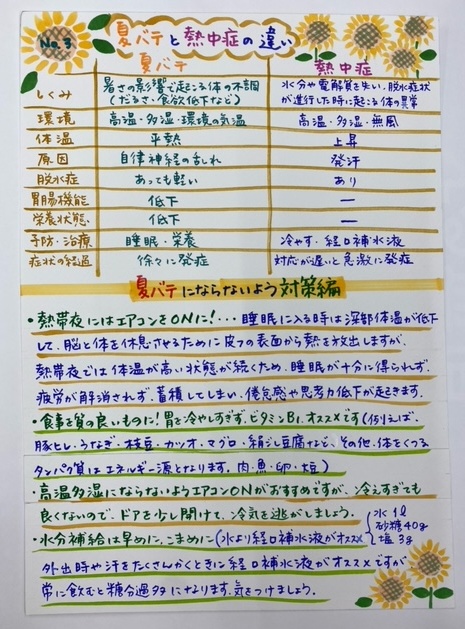 No.3
夏バテと熱中症の違い
夏バテ 熱中症
しくみ 暑さの影響で起こる体の不調 水分や電解質を失い、脱水症状
(だるさ・食欲低下など) が進行した時に起こる体の異常
環境 高温・多湿・環境の気温 高温・多湿・無風
体温 平熱 上昇
原因 自律神経の乱れ 発汗
脱水症 あっても軽い あり
胃腸機能 低下 ー
栄養状態 低下 ー
予防・治療 睡眠・栄養 冷やす・経口補水液
症状の経過 徐々に発症 対応が遅いと急激に発症
夏バテにならないよう対策編
・熱帯夜にはエアコンをONに!・・・睡眠に入る時は深部体温が低下
して、脳と体を休息させるために皮フの表面から熱を放出しますが、
熱帯夜では体温が高い状態が続くため、睡眠が十分に得られず、
疲労が解消されず、蓄積してしまい、倦怠感や思考力低下が起きます。
・食事を質の良いものに!胃を冷やしすぎず、ビタミンB₁、オススメです(例えば、
豚ヒレ・うなぎ・枝豆・カツオ・マグロ・絹ごし豆腐など、その他、体をつくる
タンパク質はエネルギー源となります。肉・魚・卵・大豆)
・高温多湿にならないようエアコンONがおすすめですが、冷えすぎても
良くないので、ドアを少し開けて、冷気を逃がしましょう。
・水分補給は早めに、こまめに(水より経口補水液がオススメ
水 1ℓ
砂糖40g
塩 3g
外出時や汗をたくさんかくときに経口補水液がオススメですが
常に飲むと糖分過多になります。気をつけましょう。